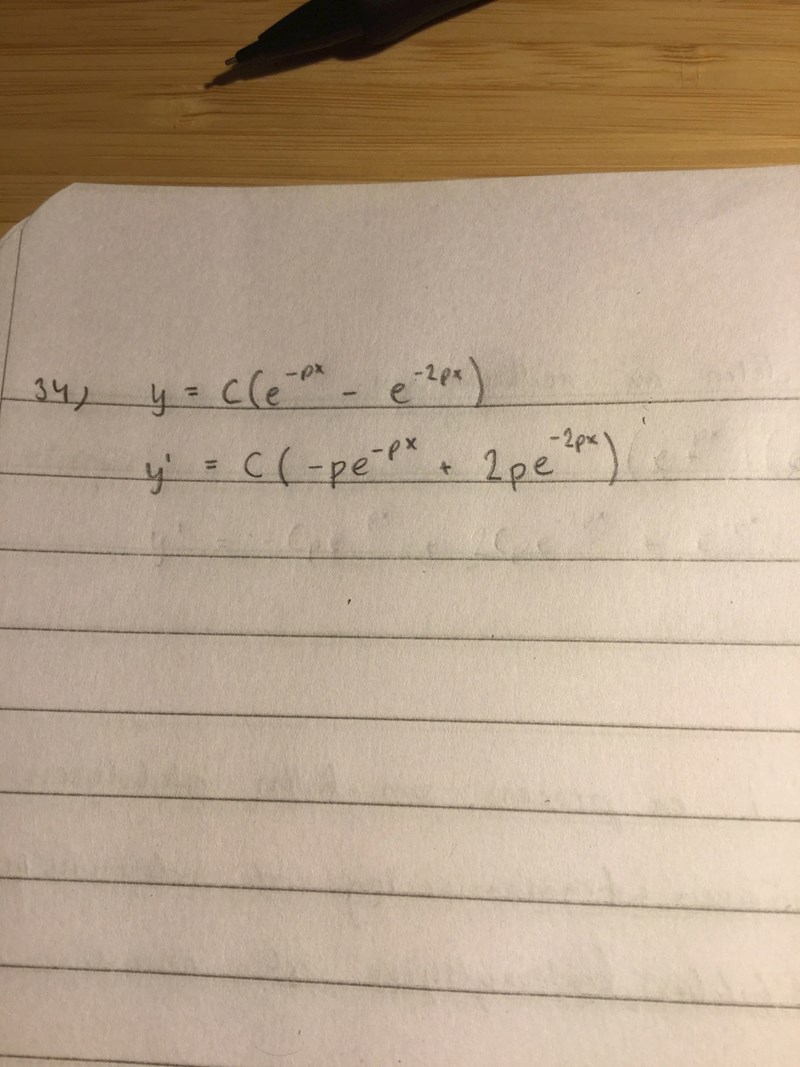 34) y = C(e^{-px} - e^{-2px})
y' = C(-pe^{-px} + 2pe^{-2px})